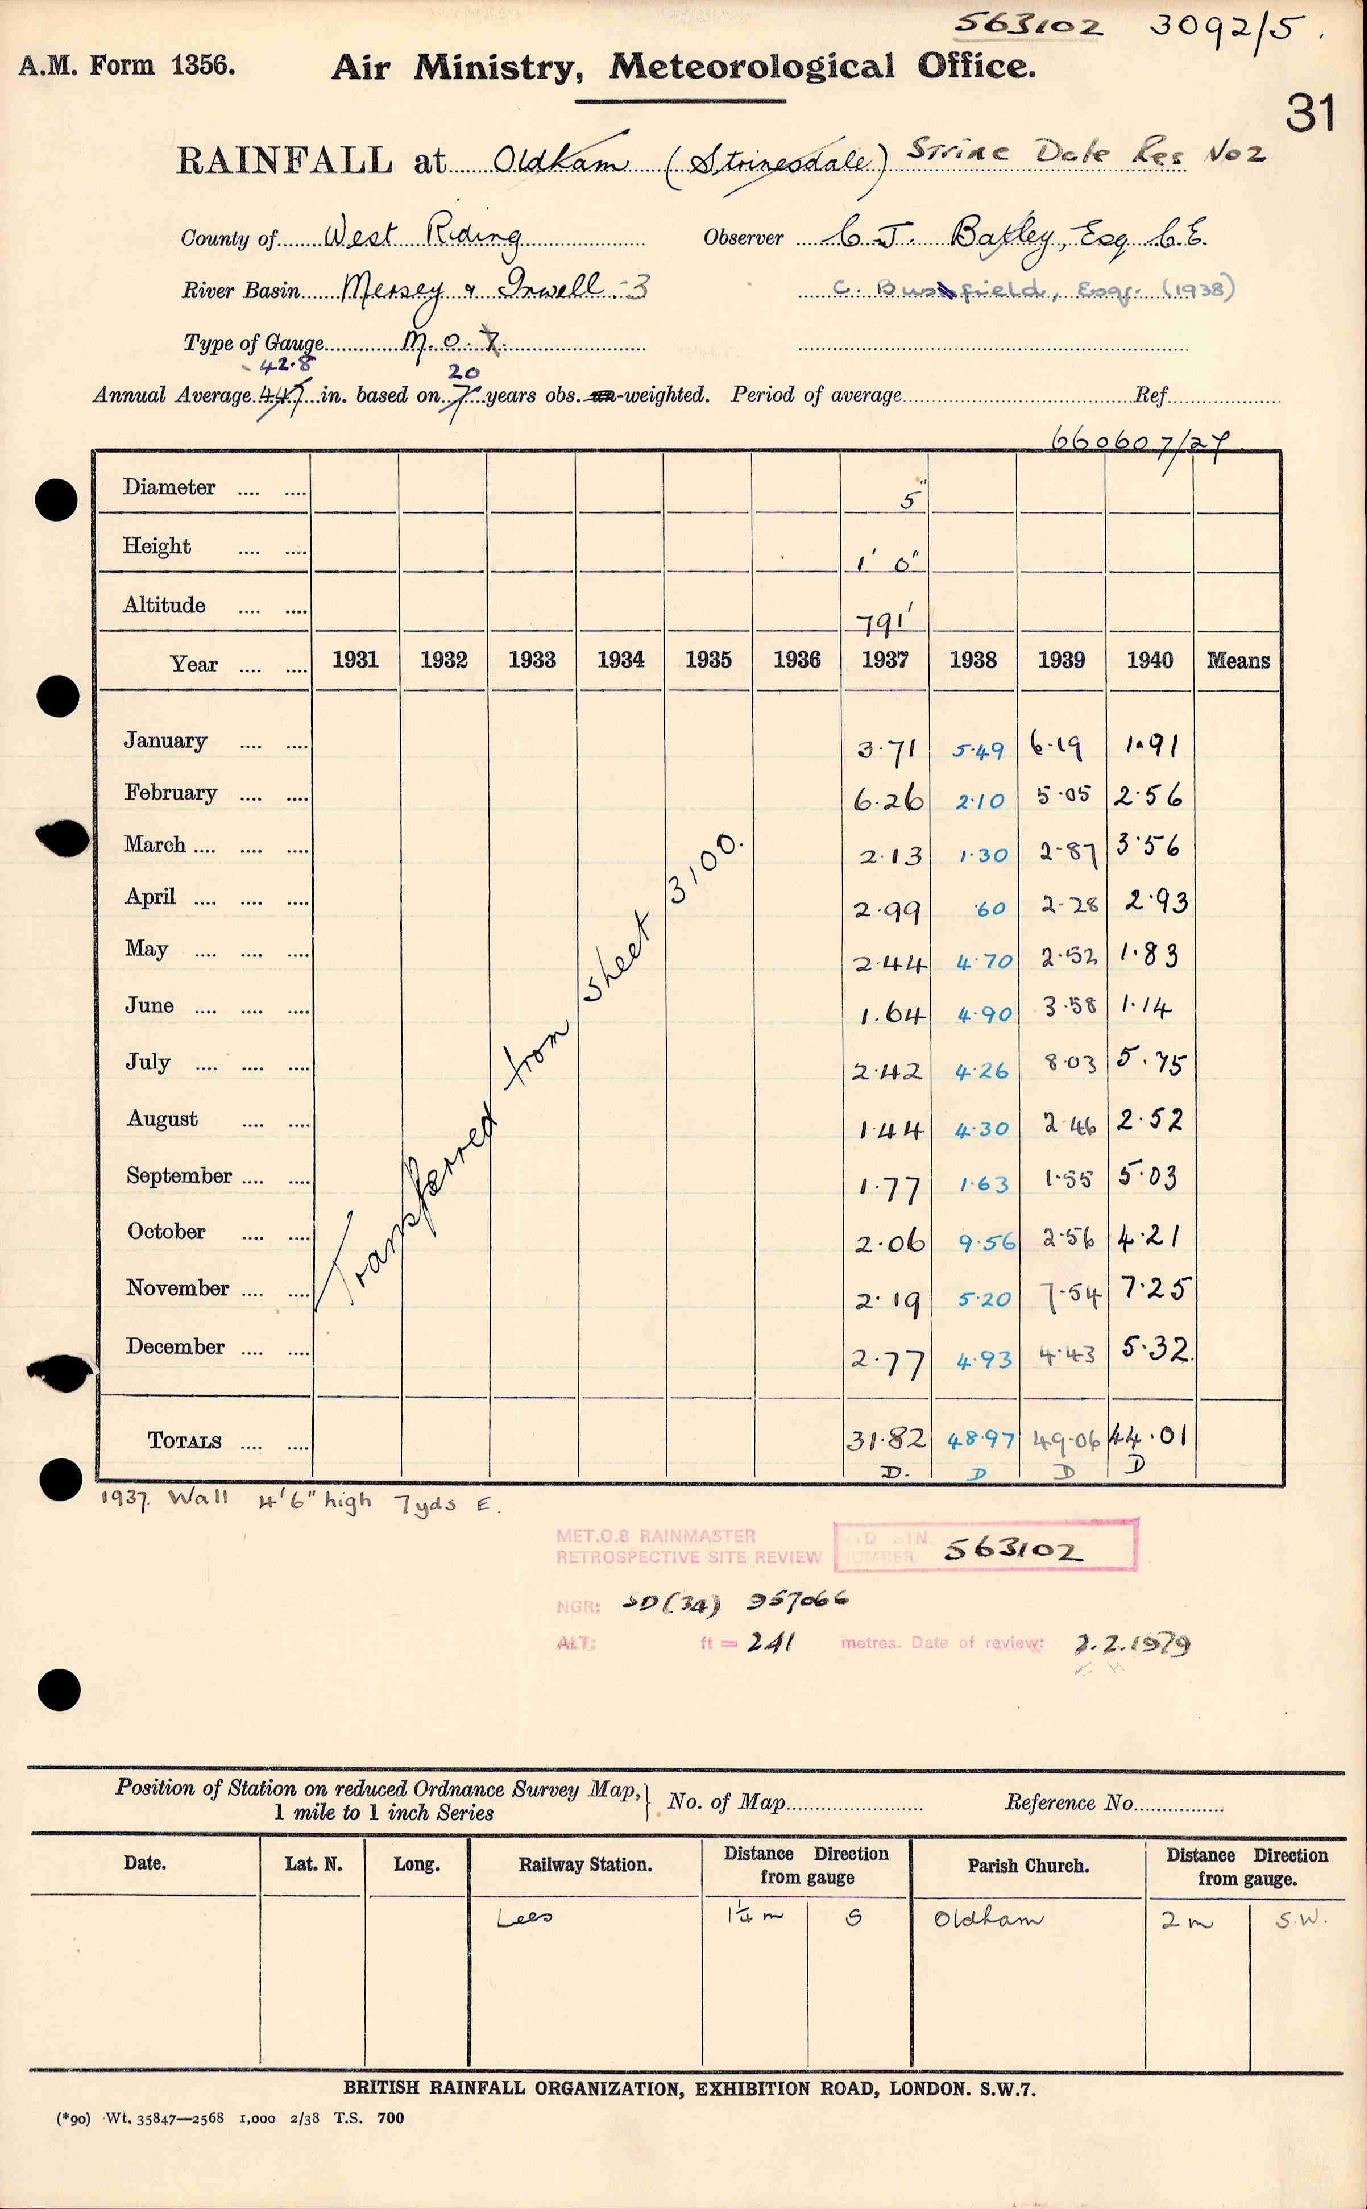 563102 3092/5.
A.M. Form 1356. Air Ministry, Meteorological Office.
31
RAINFALL at Oldham (Strinesdale) Strine Dale Res No 2
County of West Riding Observer C. J. Batley, Esq C.E.
River Basin Mersey & Irwell. 3 C. Bushfield, Esqr. (1938)
Type of Gauge M.O.
42.8 20
Annual Average 44.7 in. based on 7 years obs. -weighted. Period of average Ref
660607/27
Diameter .... .... 5"
Height .... .... 1' 0"
Altitude .... .... 791'
Year .... .... 1931 1932 1933 1934 1935 1936 1937 1938 1939 1940 Means
January .... .... 3.71 5.49 6.19 1.91
February .... .... 6.26 2.10 5.05 2.56
March .... .... .... 2.13 1.30 2.87 3.56
April .... .... .... 2.99 .60 2.28 2.93
May .... .... .... 2.44 4.70 2.52 1.83
June .... .... .... 1.64 4.90 3.58 1.14
July .... .... .... 2.42 4.26 8.03 5.75
August .... .... 1.44 4.30 2.46 2.52
September .... .... 1.77 1.63 1.55 5.03
October .... .... 2.06 9.56 2.56 4.21
November .... .... 2.19 5.20 7.54 7.25
December .... .... 2.77 4.93 4.43 5.32
Transferred from sheet 3100.
TOTALS .... .... 31.82 48.97 49.06 44.01
D. D D D
1937. Wall 4'6" high 7yds E.
MET.O.8 RAINMASTER
RETROSPECTIVE SITE REVIEW STN. NUMBER 563102
NGR: SD(34) 957066
ALT: ft = 241 metres. Date of review: 2.2.1979
Position of Station on reduced Ordnance Survey Map, No. of Map Reference No.
1 mile to 1 inch Series
Date. Lat. N. Long. Railway Station. Distance Direction from gauge Parish Church. Distance Direction from gauge.
Lees 1¼ m S Oldham 2 m S.W.
BRITISH RAINFALL ORGANIZATION, EXHIBITION ROAD, LONDON. S.W.7.
(*90) Wt. 35847—2568 1,000 2/38 T.S. 700